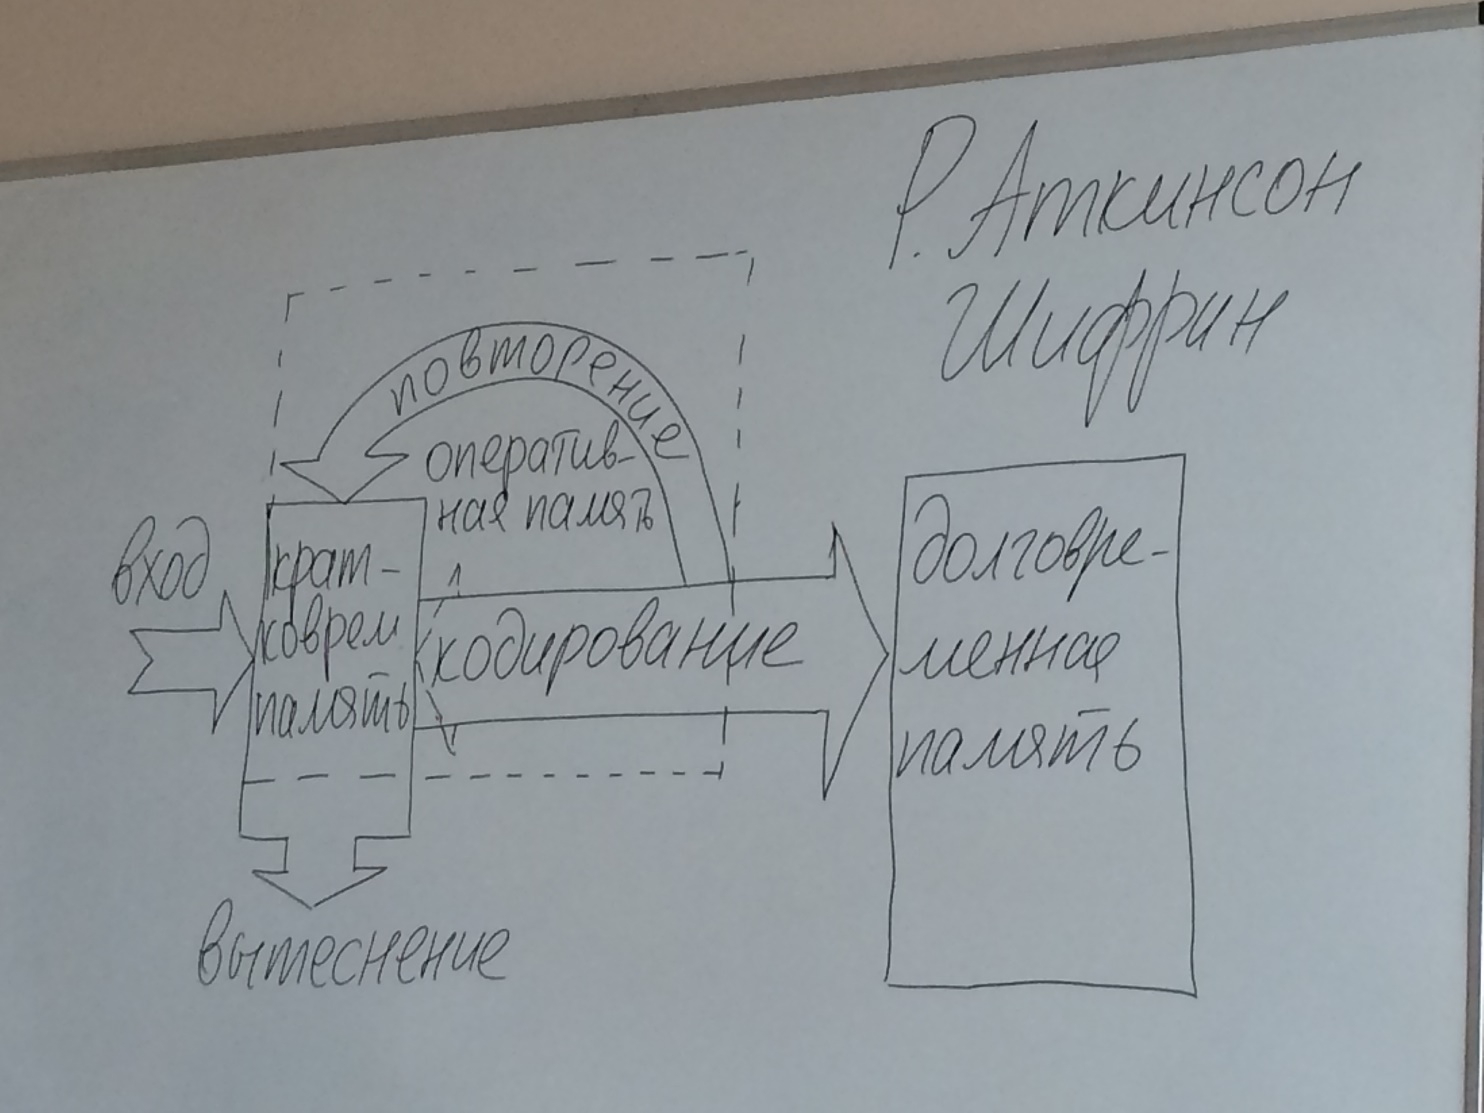 Р. Аткинсон
Шифрин
повторение
оператив-
ная память
вход
крат-
коврем
память
кодирование
долговре-
менная
память
вытеснение